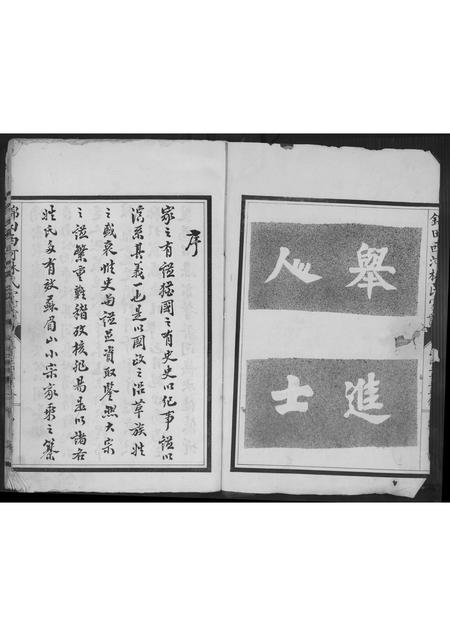 舉人
進士
序
家之有譜猶國之有史史以紀事譜以
溯系其義一也是以國政之沿革族姓
之盛衰惟史與譜足資取鑒然大宗
之譜繁重難稽攷核匪易是以諸右
姓氏多有放蘇眉山小宗家乘之纂